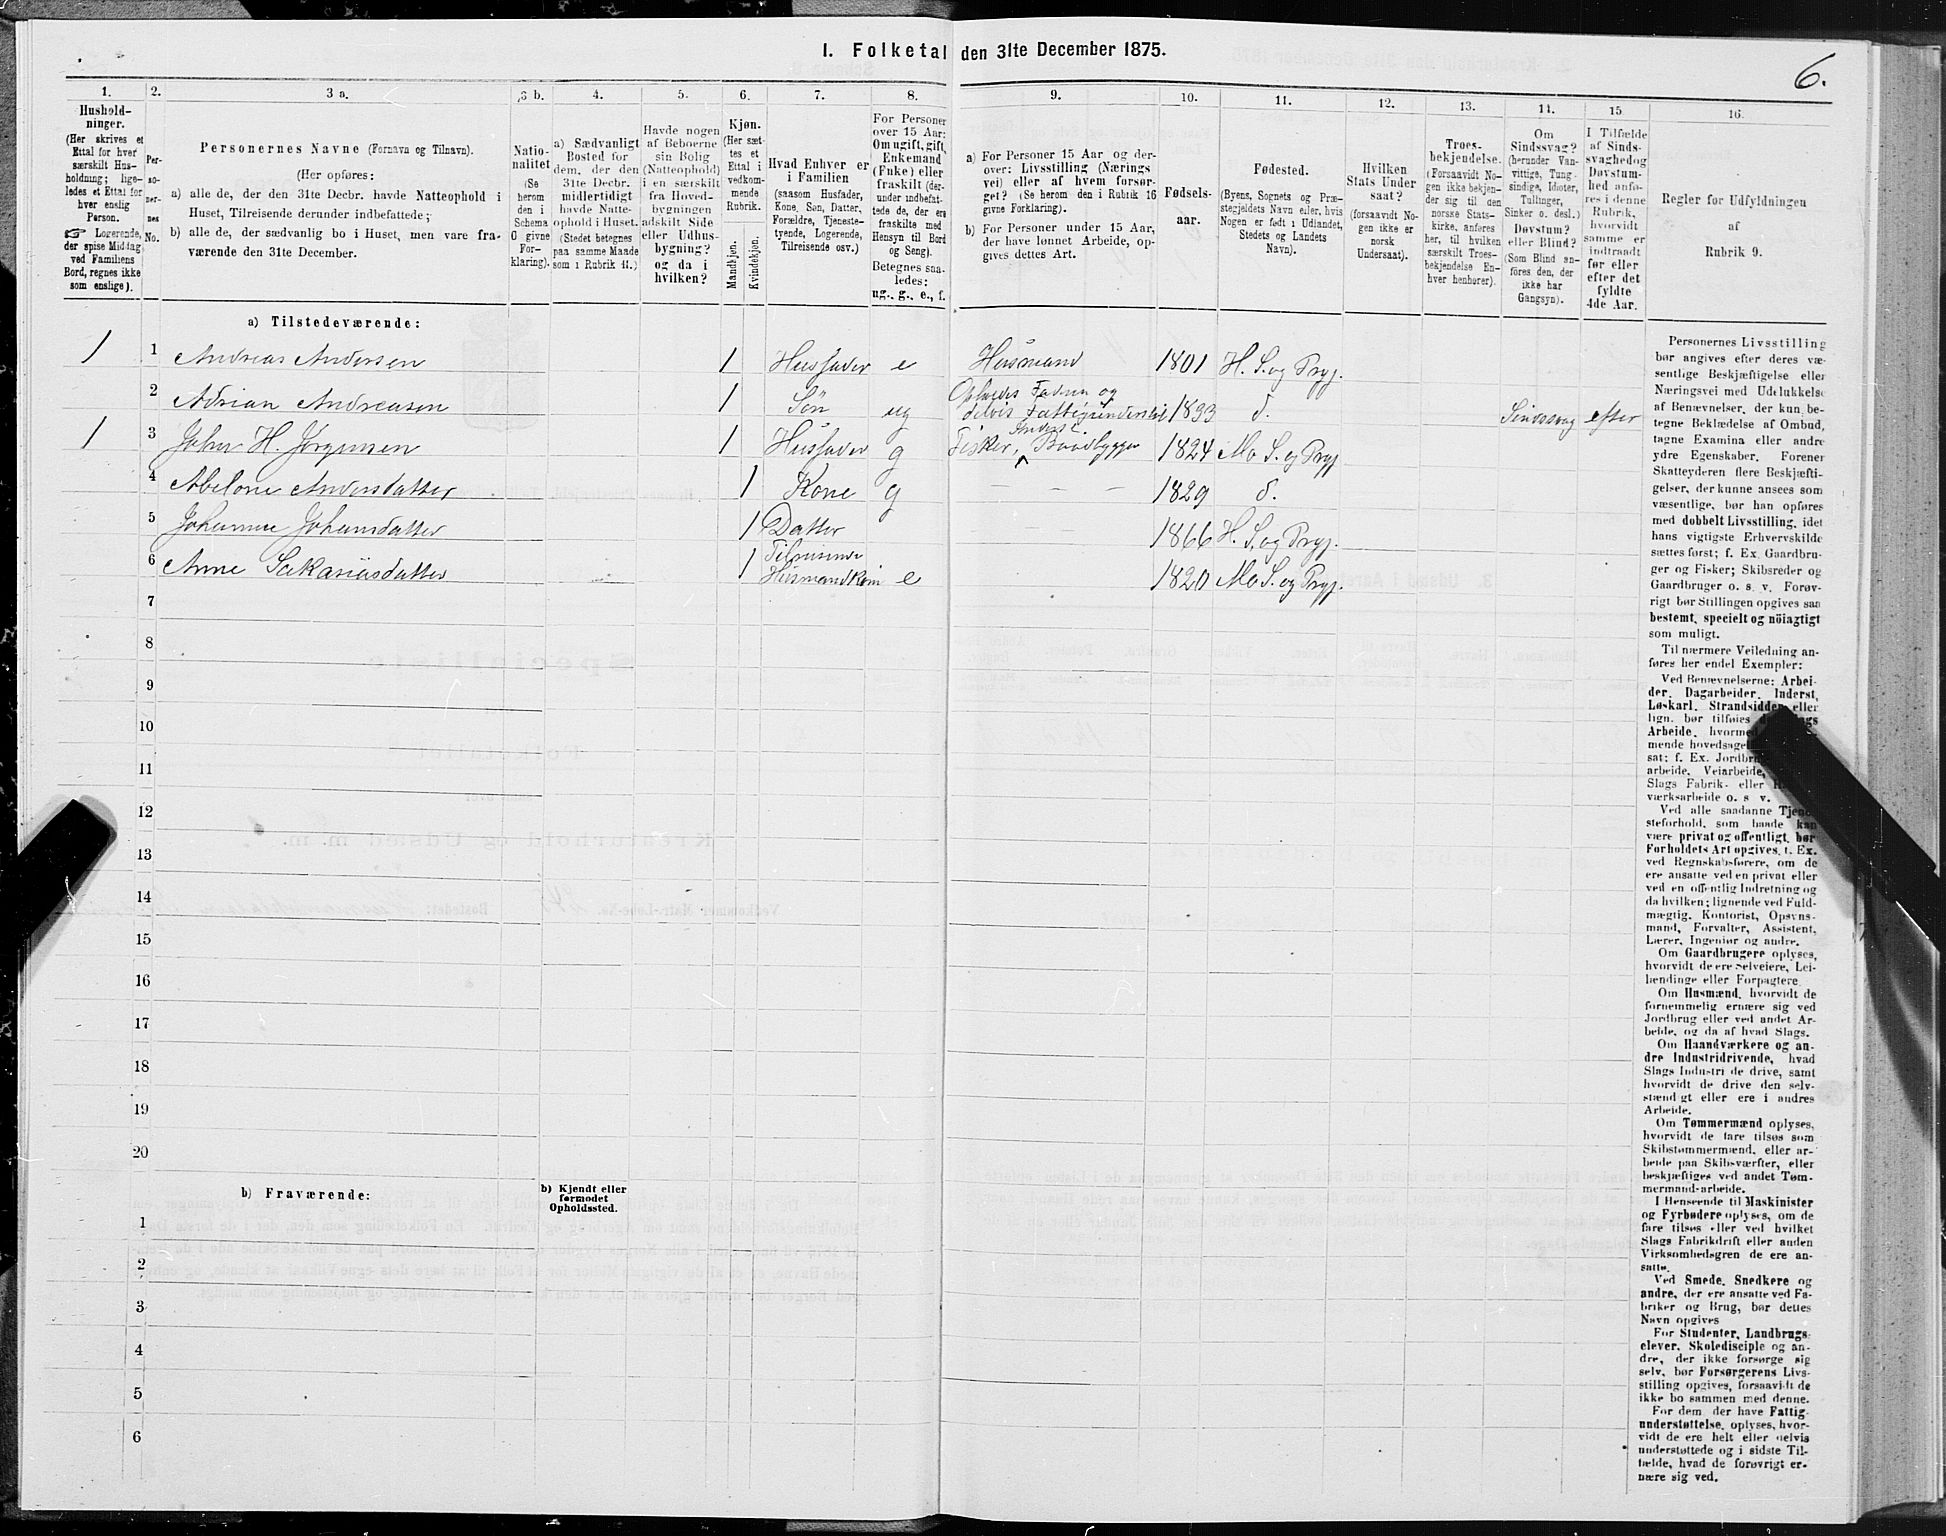 I. Folketal den 31te December 1875.
6.
1.
Hushold-
ninger.
(Her skrives et
Ettal for hver
særskilt Hus-
holdning; lige-
ledes et Ettal for
hver enslig
Person.
☞ Logerende,
der spise Middag
ved Familiens
Bord, regnes ikke
som enslige).
2.
Per-
so-
ner-
nes
No.
3 a.
Personernes Navne (Fornavn og Tilnavn).
(Her opføres:
a) alle de, der den 31te Decbr. havde Natteophold i
Huset, Tilreisende derunder indbefattede;
b) alle de, der sædvanlig bo i Huset, men vare fra-
værende den 31te December.
3 b.
Natio-
nalitet
(Se
herom
den i
Schema
G givne
For-
klaring).
4.
a) Sædvanligt
Bosted for
dem, der den
31te Decbr.
midlertidigt
havde Natte-
ophold i Huset.
(Stedet betegnes
paa samme Maade
som i Rubrik 11.)
5.
Havde nogen
af Beboerne
sin Bolig
(Natteophold)
i en særskilt
fra Hoved-
bygningen
adskilt Side
eller Udhus-
bygning?
og da i
hvilken?
6.
Kjøn.
(Her sæt-
tes et
Ettal i
vedkom-
mende
Rubrik.
Mandkjøn.
Kvindekjøn.
7.
Hvad Enhver er
i Familien
(saasom Husfader,
Kone, Søn, Datter,
Forældre, Tjeneste-
tyende, Logerende,
Tilreisende osv.)
8.
For Personer
over 15 Aar:
Om ugift, gift,
Enkemand
(Enke) eller
fraskilt (der-
under indbefat-
tede de, der ere
fraskilte med
Hensyn til Bord
og Seng).
Betegnes saa-
ledes:
ug., g., e., f.
9.
a) For Personer 15 Aar og der-
over: Livsstilling (Nærings-
vei) eller af hvem forsør-
get? (Se herom den i Rubrik 16
givne Forklaring).
b) For Personer under 15 Aar,
der have lønnet Arbeide, op-
gives dettes Art.
10.
Fødsels-
aar.
11.
Fødested.
(Byens, Sognets og Præ-
stegjeldets Navn eller, hvis
Nogen er født i Udlandet,
Stedets og Landets
Navn).
12.
Hvilken
Stats Under
saat?
(forsaavidt No-
gen ikke er
norsk
Undersaat).
13.
Troes-
bekjendelse.
(Forsaavidt No-
gen ikke bekjen-
der sig til den
norske Stats-
kirke, anføres
her, til hvilken
særskilt Troes-
bekjendelse En-
hver henhører).
14.
Om
Sindssvag?
(herunder Van-
vittige, Tung-
sindige, Idioter,
Tullinger,
Sinker o. desl.)
Døvstum?
eller Blind?
(Som Blind an-
føres den, der
ikke har
Gangsyn).
15
I Tilfælde
af Sinds-
svaghed og
Døvstum-
hed anfø-
res i denne
Rubrik,
hvorvidt
samme er
indtraadt
før eller
efter det
fyldte
4de Aar.
16.
Regler for Udfyldningen
af
Rubrik 9.
a) Tilstedeværende:
1 1 Andreas Andersen 1 Husfader e Husmand 1801 H. S. og Prgj.
2 Adrian Andreasen 1 Søn ug Opholdes Faderen og delvis Fattigunderstøt 1833 d. Sindssvag efter
1 3 Johan H. Jørgensen 1 Husfader g Fisker, Inderst Baadbygger 1824 Mo S. og Prgj.
4 Abelone Andersdatter 1 Kone g — — — 1829 d.
5 Johanne Johansdatter 1 Datter 1866 H. S. og Prgj.
6 Anne Sakariasdatter 1 Tilreisende Husmandkone e 1820 Mo S. og Prgj.
7
8
9
10
11
12
13
14
15
16
17
18
19
20
b) Fraværende:
b) Kjendt eller
formodet
Opholdssted.
1
2
3
4
5
6
Personernes Livsstilling
bør angives efter deres væ-
sentlige Beskjæftigelse eller
Næringsvei med Udelukkelse
af Benævnelser, der kun be-
tegne Beklædelse af Ombud,
tagne Examina eller andre
ydre Egenskaber. Forener
Skatteyderen flere Beskjæfti-
gelser, der kunne ansees som
væsentlige, bør han opføres
med dobbelt Livsstilling, idet
hans vigtigste Erhvervskilde
sættes først; f. Ex. Gaardbru-
ger og Fisker; Skibsreder og
Gaardbruger o. s. v. Forøv-
rigt bør Stillingen opgives saa
bestemt, specielt og nöiagtigt
som muligt.
Til nærmere Veiledning an-
føres her endel Exempler:
Ved Benævnelserne: Arbei-
der, Dagarbeider, Inderst,
Løskarl, Strandsidder eller
lign. bør tilføies
Arbeide, hvormed
mende hovedsage
sat; f. Ex. Jordbr
arbeide, Veiarbeide,
Slags Fabrik- eller
værksarbeide o. s v.
Ved alle saadanne Tjene-
steforhold, som baade kan
være privat og offentligt, bør
Forholdets Art opgives, f. Ex.
ved Regnskabsførere, om de
ere ansatte ved en privat eller
ved en offentlig Indretning og
da hvilken; lignende ved Fuld-
mægtig, Kontorist, Opsyns-
mand, Forvalter, Assistent,
Lærer, Ingeniør og andre.
Om Gaardbrugere oplyses,
hvorvidt de ere Selveiere, Lei-
lændinge eller Forpagtere.
Om Husmænd, hvorvidt de
fornemmelig ernære sig ved
Jordbrug eller ved andet Ar-
beide, og da af hvad Slags.
Om Haandværkere og an-
dre Industridrivende, hvad
Slags Industri de drive, samt
hvorvidt de drive den selv-
stændigt eller ere i andres
Arbeide.
Om Tømmermænd oplyses,
hvorvidt de fare tilsøs som
Skibstømmermænd, eller ar-
beide paa Skibsværfter, eller
beskjæftiges ved andet Tøm-
mermandarbeide.
I Henseende til Maskinister
og Fyrbødere oplyses, om de
fare tilsøs eller ved hvilket
Slags Fabrikdrift eller anden
Virksomhedsgren de ere an-
satte.
Ved Smede, Snedkere og
andre, der ere ansatte ved Fa-
briker og Brug, bør dettes
Navn opgives
For Studenter, Landbrugs-
elever, Skoledisciple og an-
dre, der ikke forsørge sig
selv, bør Forsørgerens Livs-
stilling opgives, forsaavidt de
ikke bo sammen med denne.
For dem, der have Fattig-
understøttelse, oplyses, hvor-
vidt de ere helt eller delvis
understøttede og i sidste Til-
fælde, hvad de forøvrigt er-
nære sig ved.